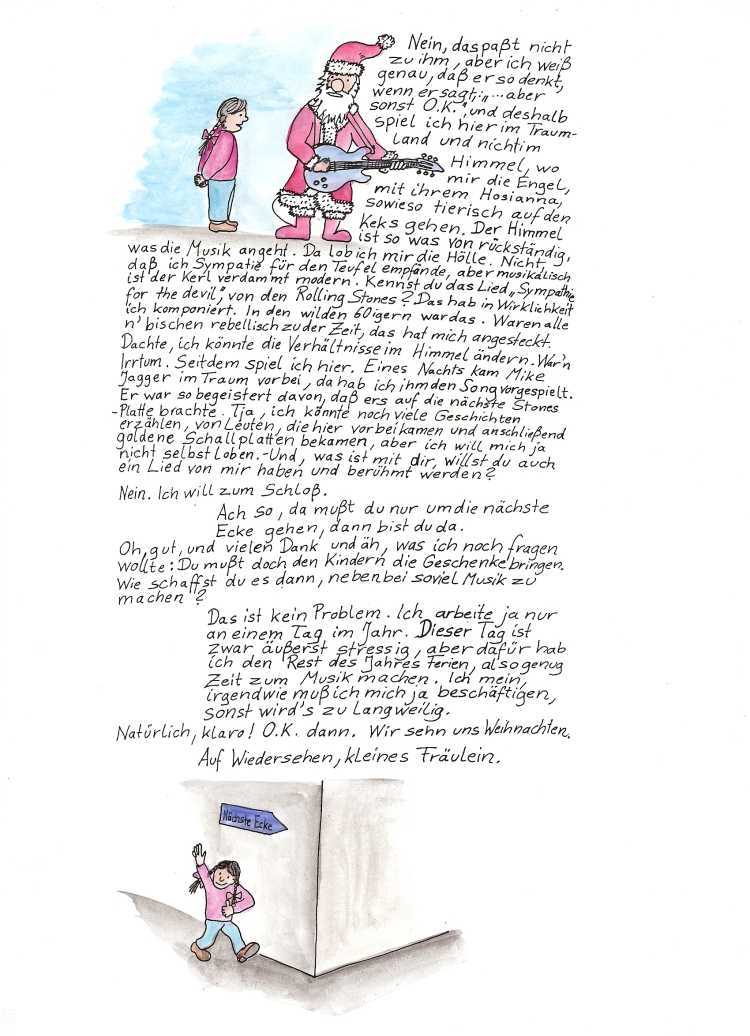 Nein, das paßt nicht
zu ihm, aber ich weiß
genau, daß er so denkt,
wenn er sagt: „...aber
sonst O.K.", und deshalb
spiel ich hier im Traum-
land und nicht im
Himmel, wo
mir die Engel,
mit ihrem Hosianna,
sowieso tierisch auf den
Keks gehen. Der Himmel
ist so was von rückständig,
was die Musik angeht. Da lob ich mir die Hölle. Nicht,
daß ich Sympatie für den Teufel empfände, aber musikalisch
ist der Kerl verdammt modern. Kennst du das Lied „Sympathie
for the devil", von den Rolling Stones? Das hab in Wirklichkeit
ich komponiert. In den wilden 60igern war das. Waren alle
n' bischen rebellisch zu der Zeit, das hat mich angesteckt.
Dachte, ich könnte die Verhältnisse im Himmel ändern. War'n
Irrtum. Seitdem spiel ich hier. Eines Nachts kam Mike
Jagger im Traum vorbei, da hab ich ihm den Song vorgespielt.
Er war so begeistert davon, daß ers auf die nächste Stones
-Platte brachte. Tja, ich könnte noch viele Geschichten
erzählen, von Leuten, die hier vorbeikamen und anschließend
goldene Schallplatten bekamen, aber ich will mich ja
nicht selbst loben. - Und, was ist mit dir, willst du auch
ein Lied von mir haben und berühmt werden?
Nein. Ich will zum Schloß.
Ach so, da mußt du nur um die nächste
Ecke gehen, dann bist du da.
Oh, gut, und vielen Dank und äh, was ich noch fragen
wollte: Du mußt doch den Kindern die Geschenke bringen.
Wie schaffst du es dann, nebenbei soviel Musik zu
machen?
Das ist kein Problem. Ich arbeite ja nur
an einem Tag im Jahr. Dieser Tag ist
zwar äußerst stressig, aber dafür hab
ich den Rest des Jahres Ferien, also genug
Zeit zum Musik machen. Ich mein,
irgendwie muß ich mich ja beschäftigen,
sonst wird's zu Langweilig.
Natürlich, klaro! O.K. dann. Wir sehn uns Weihnachten.
Auf Wiedersehen, kleines Fräulein.
Nächste Ecke